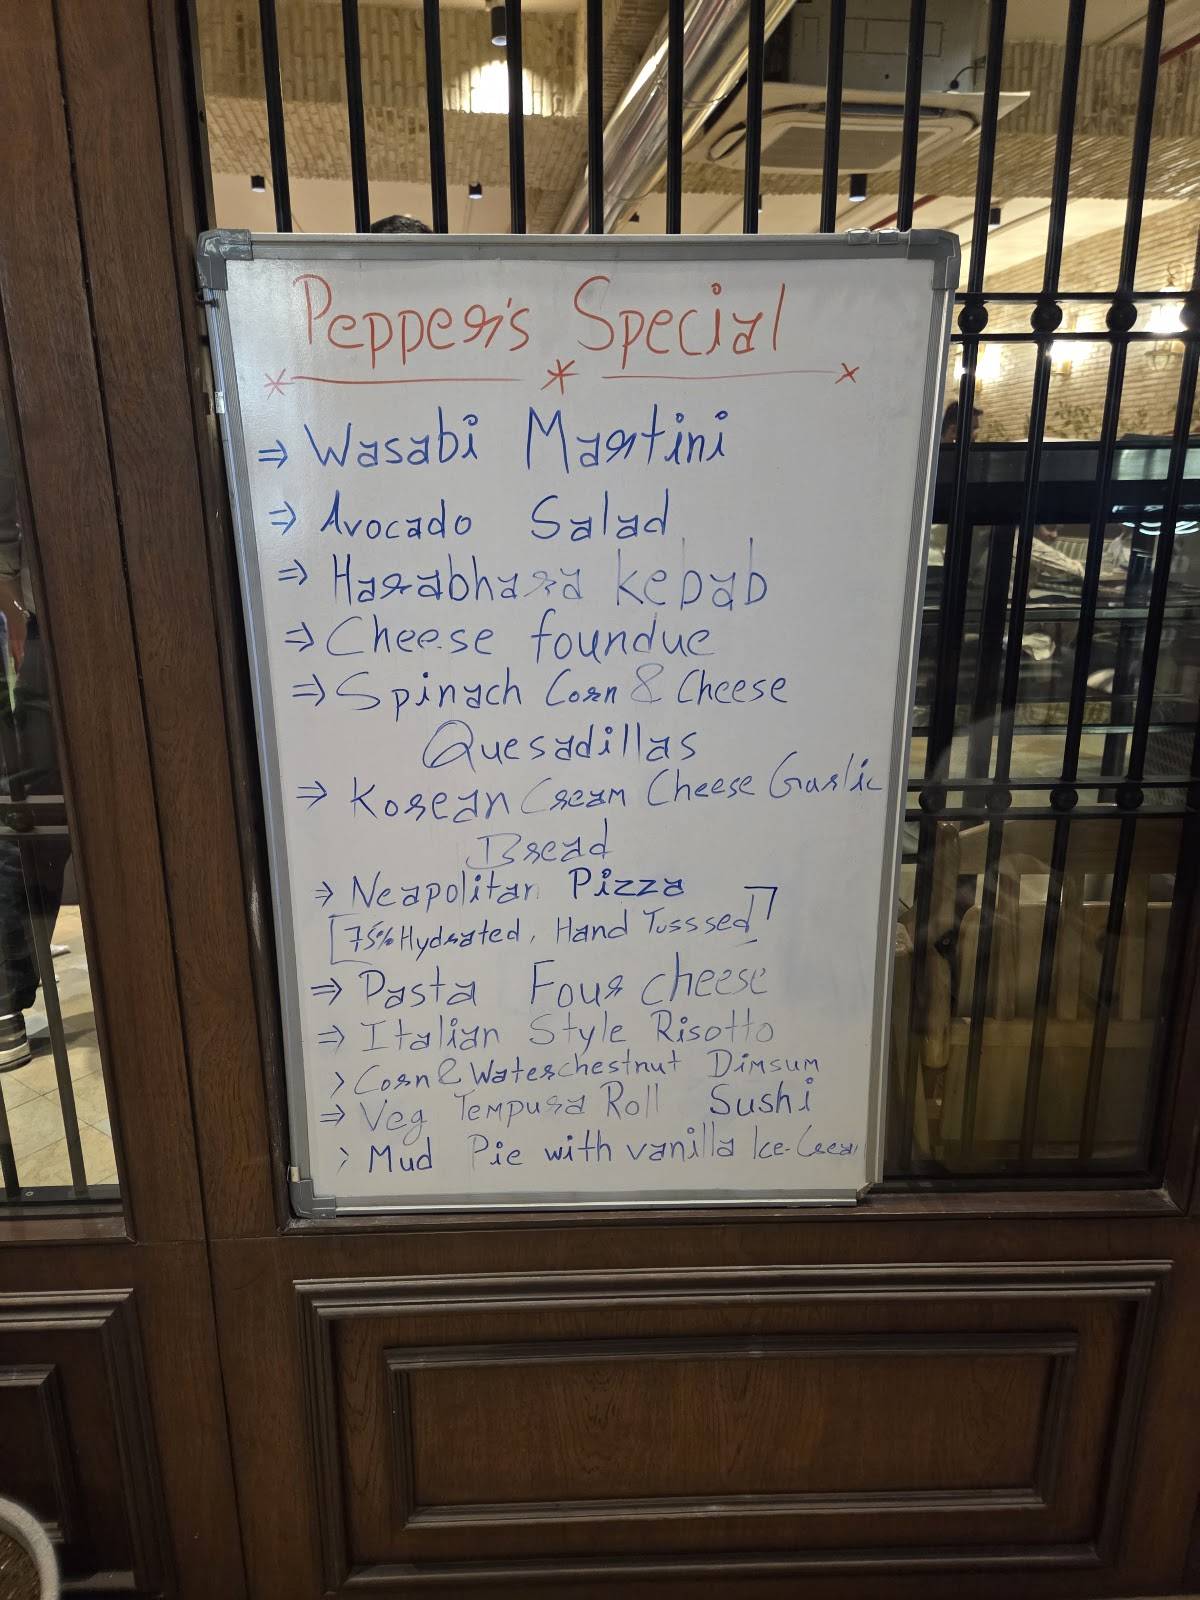 Pepper's Special
⇒ Wasabi Martini
⇒ Avocado Salad
⇒ Harabhara kebab
⇒ Cheese foundue
⇒ Spinach Corn & Cheese
Quesadillas
⇒ Korean Cream Cheese Garlic
Bread
⇒ Neapolitan Pizza
[75% Hydrated, Hand Tusssed]
⇒ Pasta Four cheese
⇒ Italian Style Risotto
> Corn & Waterchestnut Dimsum
⇒ Veg Tempura Roll Sushi
> Mud Pie with vanilla Ice-Cream